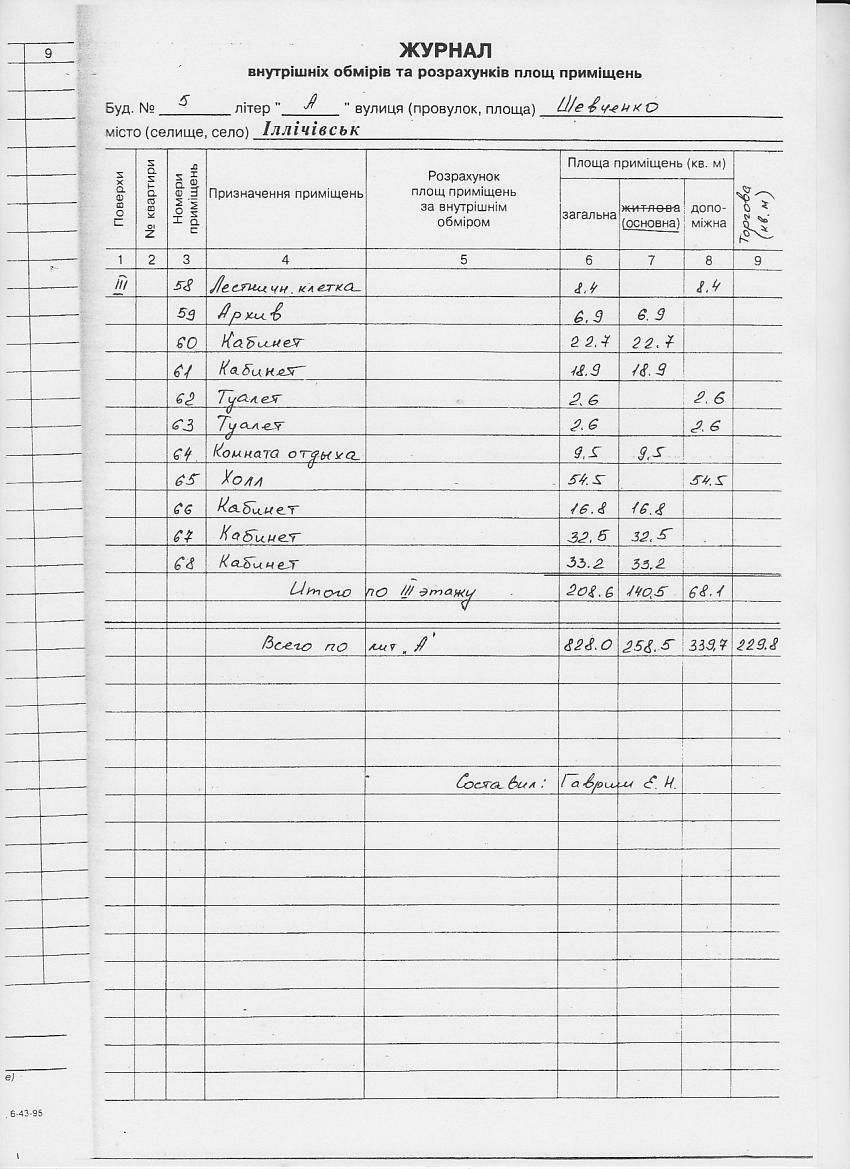 9
ЖУРНАЛ
внутрішніх обмірів та розрахунків площ приміщень
Буд. № 5 літер " А " вулиця (провулок, площа) Шевченко
місто (селище, село) Іллічівськ
Поверхи
№ квартири
Номери приміщень
Призначення приміщень
Розрахунок
площ приміщень
за внутрішнім
обміром
Площа приміщень (кв. м)
загальна
житлова
(основна)
допо-
міжна
Торгова
(кв. м)
1 2 3 4 5 6 7 8 9
III 58 Лестничн. клетка 8.4 8.4
59 Архив 6.9 6.9
60 Кабинет 22.7 22.7
61 Кабинет 18.9 18.9
62 Туалет 2.6 2.6
63 Туалет 2.6 2.6
64 Комната отдыха 9,5 9,5
65 Холл 54.5 54.5
66 Кабинет 16.8 16.8
67 Кабинет 32,5 32.5
68 Кабинет 33.2 33.2
Итого по III этажу 208.6 140,5 68.1
Всего по лит „А" 828.0 258.5 339,7 229.8
Составил: Гаврим Е. Н.
е)
6-43-95